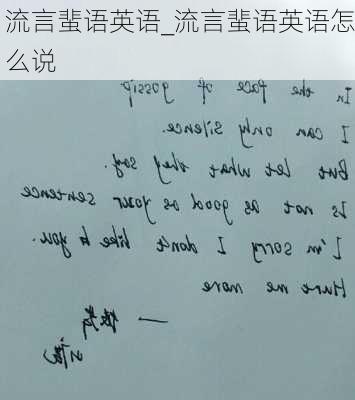 流言蜚语英语_流言蜚语英语怎
么说
In the face of gossip
I can only silence.
But let what they say.
Is not as good as your sentence
I'm sorry I don't like to you.
Hurt me more